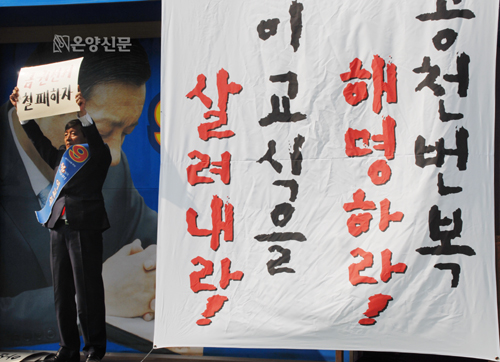 온양신문
철폐하자
9
공천번복
해명하라!
이교식을
살려내라!